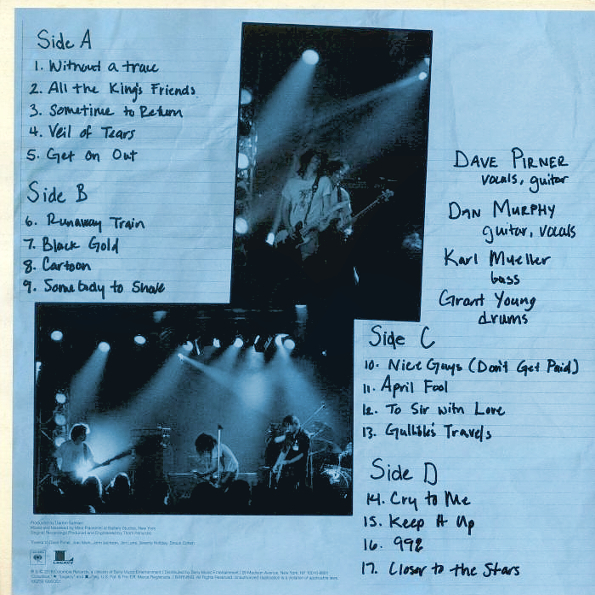 Side A
1. Without a trace
2. All the King's Friends
3. Sometime to Return
4. Veil of Tears
5. Get on Out
Side B
6. Runaway Train
7. Black Gold
8. Cartoon
9. Somebody to Shove
DAVE PIRNER
vocals, guitar
DAN MURPHY
guitar, vocals
Karl Mueller
bass
Grant Young
drums
Side C
10. Nice Guys (Don't Get Paid)
11. April Fool
12. To Sir with Love
13. Gullible's Travels
Side D
14. Cry to Me
15. Keep It Up
16. 99%
17. Closer to the Stars